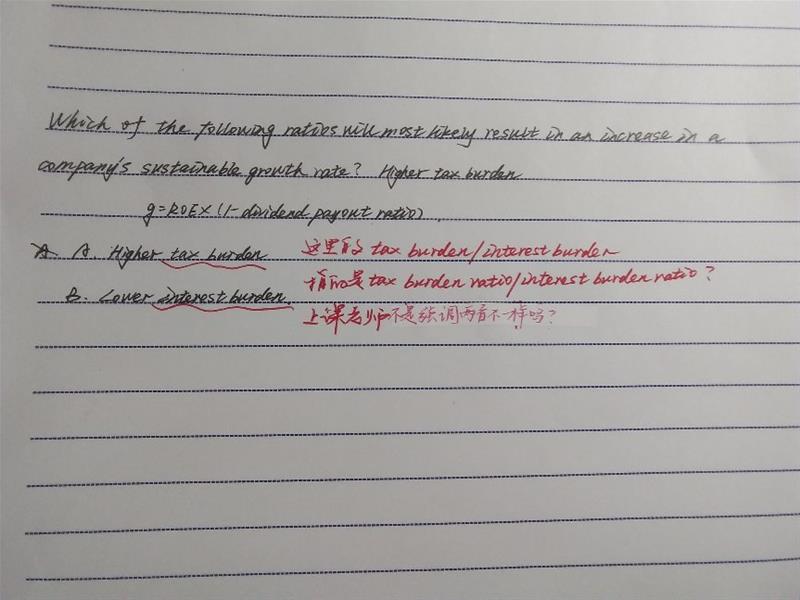 Which of the following ratios will most likely result in an increase in a
company's sustainable growth rate? Higher tax burden
g=ROE×(1-dividend payout ratio).
A. Higher tax burden 这里的 tax burden/interest burden
指的是 tax burden ratio/interest burden ratio?
B. Lower interest burden.
上课老师不是强调两者不一样吗?